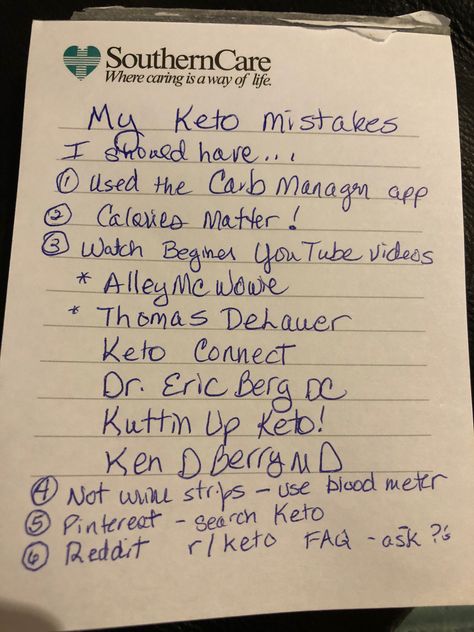 SouthernCare
Where caring is a way of life.
My Keto Mistakes
I should have...
① Used the Carb Manager app
② Calories Matter!
③ Watch Beginer YouTube videos
* Alley McWowe
* Thomas DeLauer
Keto Connect
Dr. Eric Berg DC
Kuttin Up Keto!
Ken D Berry MD
④ Not urine strips - use blood meter
⑤ Pinterest - search Keto
⑥ Reddit r/keto FAQ - ask ?s